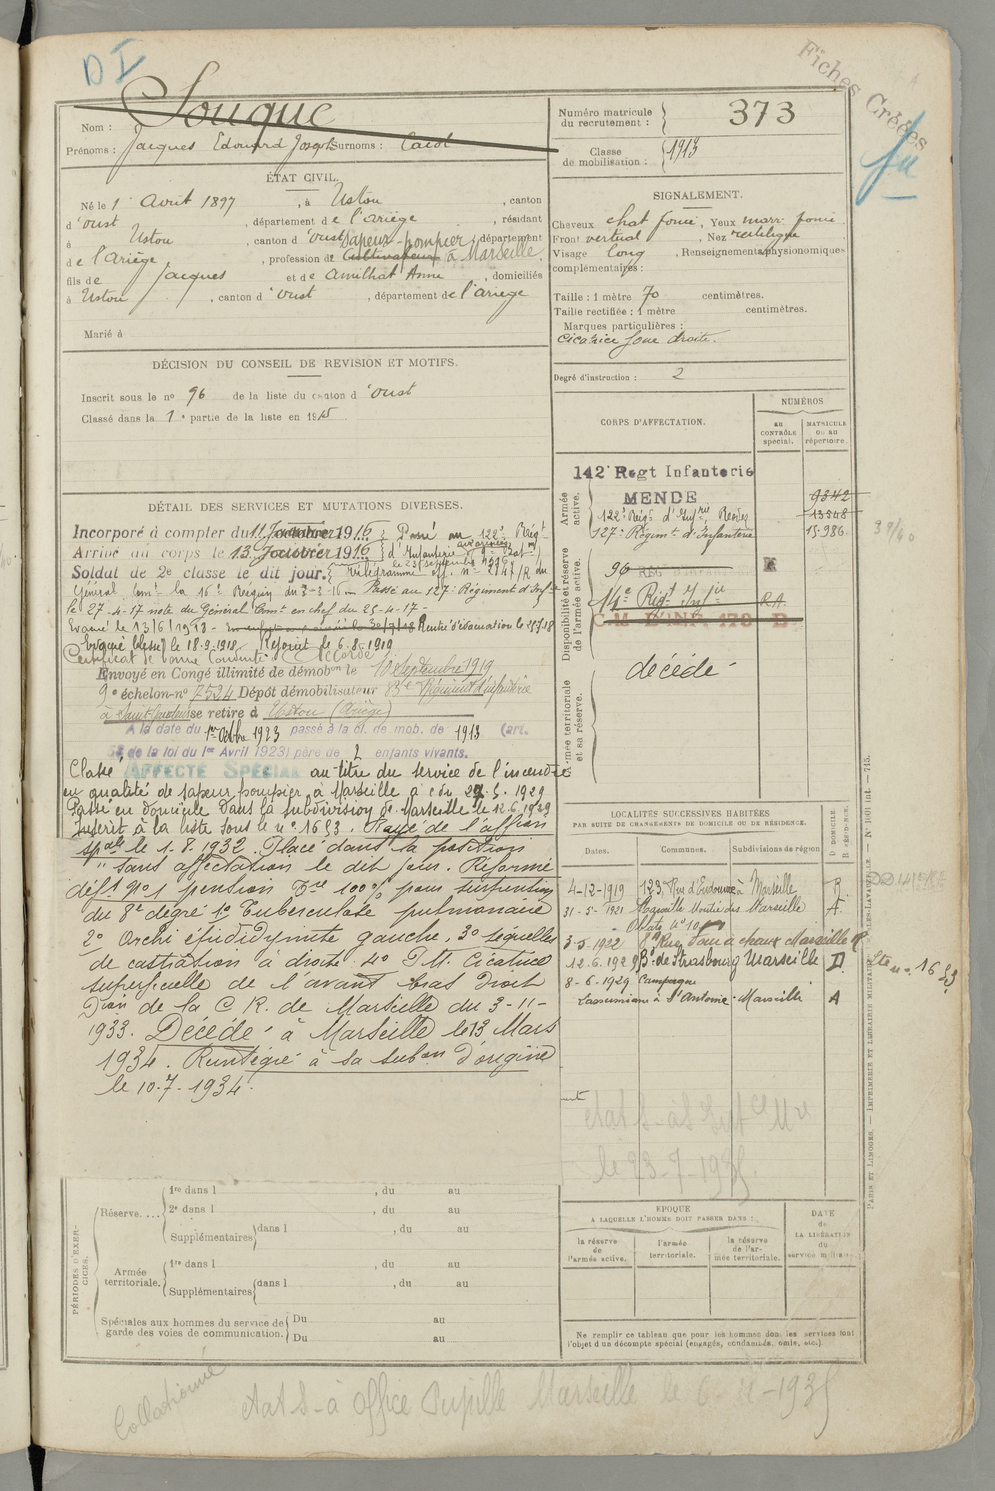 D I
Fiches Créées
Nom : Souque
Prénoms : Jacques Edouard Joseph Surnoms :
Numéro matricule du recrutement : 373
Classe de mobilisation : 1913
ÉTAT CIVIL.
Né le 1 Avril 1897, à Ustou, canton
d'Oust, département de l'Ariège, résidant
à Ustou, canton d'Oust, département
sapeur-pompier
de l'Ariège, profession de Cultivateur à Marseille.
fils de Jacques et de Amilhat Anne, domiciliés
à Ustou, canton d'Oust, département de l'Ariège
Marié à
SIGNALEMENT.
Cheveux chat. foncé, Yeux marr. foncé
Front vertical, Nez rectiligne
Visage long, Renseignements physionomiques
complémentaires :
Taille : 1 mètre 70 centimètres.
Taille rectifiée : 1 mètre centimètres.
Marques particulières :
Cicatrice joue droite.
Degré d'instruction : 2
DÉCISION DU CONSEIL DE REVISION ET MOTIFS.
Inscrit sous le no 96 de la liste du canton d'Oust
Classé dans la 1e partie de la liste en 1915
CORPS D'AFFECTATION.
NUMÉROS
AU CONTRÔLE spécial.
MATRICULE OU AU répertoire.
Armée active.
142e Regt Infanterie
MENDE
9342
122e Rég. d'Infrie, Rodez
13348
127e Régimt d'Infanterie
15.986
Disponibilité et réserve de l'armée active.
96
14e Régt Infie R.A.
C.M. D'INF. 173 D
Armée territoriale et sa réserve.
décédé
DÉTAIL DES SERVICES ET MUTATIONS DIVERSES.
Incorporé à compter du 11 1916 Passé au 122e Régt
Arrivé au corps le 13 1916 d'Infanterie
Soldat de 2e classe le dit jour.
Général Comt la 16e Région du 3-3-16 Passé au 127e Régiment d'Inf
le 27-4-17 note du Général Comt en chef du 25-4-17-
Evacué le 13/6/1918 - Rentré d'évacuation le
Evacué blessé le 18-9-1918. Rejoint le 6-8-1919
Certificat de bonne conduite Accordé
Envoyé en Congé illimité de démobon le 10 Septembre 1919
9e échelon no 7524 Dépôt démobilisateur 83e Régiment d'infanterie
à Saint-Gaudens se retire à Ustou (Ariège)
A la date du 1er Octbre 1923 passé à la cl. de mob. de 1913 (art.
de la loi du 1er Avril 1923) père de 2 enfants vivants.
Classé AFFECTÉ SPÉCIAL au titre du service de l'incendie
en qualité de sapeur pompier à Marseille à c. du 29.5.1929
Passé en domicile dans la subdivision de Marseille le 12.6.1929
Inscrit à la liste sous le no 1653. Rayé de l'affon
spale le 1.8.1932. Placé dans la position
" sans affectation le dit jour. Réformé
déft no 1 pension Bre 100% pour surpension
du 8e degré 1o Tuberculose pulmonaire
2o Orchi épididymite gauche. 3o séquelles
de castration à droite. 4o P.M. Cicatrice
superficielle de l'avant bras droit
Don de la C.R. de Marseille du 3-11-
1933. Décédé à Marseille le 13 Mars
1934. Réintégré à sa subon d'origine
le 10-7-1934.
LOCALITÉS SUCCESSIVES HABITÉES
PAR SUITE DE CHANGEMENTS DE DOMICILE OU DE RÉSIDENCE.
Dates. Communes. Subdivisions de région
D DOMICILE. R RÉSIDENCE.
4-12-1919 123 Rue d'Endoume à Marseille R.
31-5-1921 Marseille A.
3-5-1922 8 Rue Four à chaux Marseille R
12.6.1929 Bd de Strasbourg Marseille D
8-6-1929 Campagne
à St Antoine Marseille A
Liste no 1653.
le 23-7-193
PÉRIODES D'EXERCICES.
Réserve.... 1re dans l , du au
2e dans l , du au
Supplémentaires dans l , du au
Armée territoriale. 1re dans l , du au
Supplémentaires dans l , du au
Spéciales aux hommes du service de garde des voies de communication. Du au
Du au
EPOQUE
A LAQUELLE L'HOMME DOIT PASSER DANS :
la réserve de l'armée active.
l'armée territoriale.
la réserve de l'armée territoriale.
DATE de LA LIBÉRATION du service militaire.
Ne remplir ce tableau que pour les hommes dont les services font
l'objet d'un décompte spécial (engagés, condamnés, omis, etc.).
PARIS ET LIMOGES. — IMPRIMERIE ET LIBRAIRIE MILITAIRE CHARLES-LAVAUZELLE.
Collationné
état S-à Office Pupille Marseille le 6-